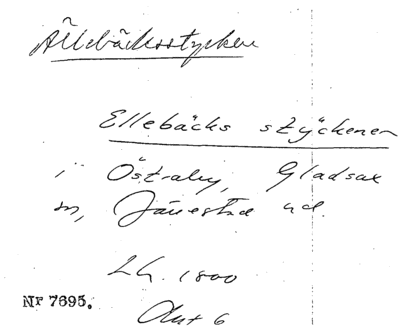 Ällebäcksstycken
Ellebäcks styckener
i Östraby, Gladsax
sn, Järrestad hd.
Lh. 1800
Akt 6
Nr 7695.